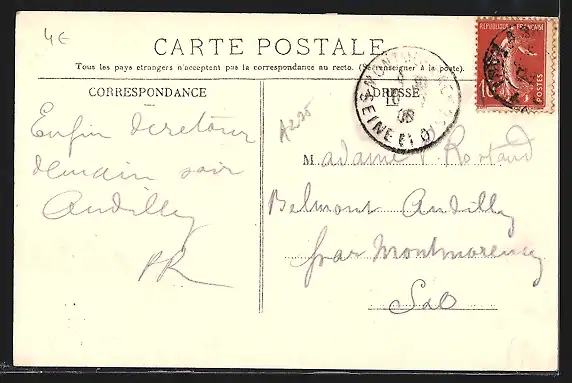 4€
CARTE POSTALE
Tous les pays étrangers n'acceptent pas la correspondance au recto. (Se renseigner à la poste).
CORRESPONDANCE
ADRESSE
RÉPUBLIQUE FRANÇAISE
POSTES
10
SEINE ET O
08
A225
Enfin de retour
demain soir
Andilly
PR
Madame Rostand
Belmont Andilly
par Montmorency
S&O